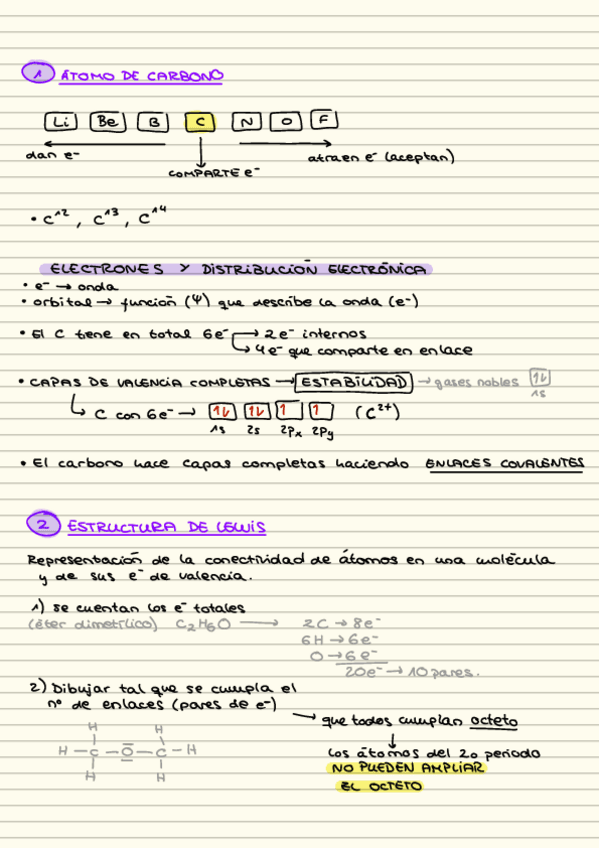 1 ÁTOMO DE CARBONO
Li Be B C N O F
dan e⁻ atraen e⁻ (aceptan)
COMPARTE e⁻
• C¹², C¹³, C¹⁴
ELECTRONES Y DISTRIBUCIÓN ELECTRÓNICA
• e⁻ → onda
• orbital → función (Ψ) que describe la onda (e⁻)
• El C tiene en total 6e⁻ → 2e⁻ internos
↳ 4e⁻ que comparte en enlace
• CAPAS DE VALENCIA COMPLETAS → ESTABILIDAD → gases nobles 1↓
1s
↳ C con 6e⁻ → 1↓ 1↓ 1 1 (C²⁺)
1s 2s 2px 2py
• El carbono hace capas completas haciendo ENLACES COVALENTES
2 ESTRUCTURA DE LEWIS
Representación de la conectividad de átomos en una molécula
y de sus e⁻ de valencia.
1) se cuentan los e⁻ totales
(éter dimetílico) C₂H₆O → 2C → 8e⁻
6H → 6e⁻
O → 6e⁻
20e⁻ → 10 pares.
2) Dibujar tal que se cumpla el
nº de enlaces (pares de e⁻)
→ que todos cumplan octeto
H H
H — C — O — C — H
H H
los átomos del 2o periodo
NO PUEDEN AMPLIAR
EL OCTETO